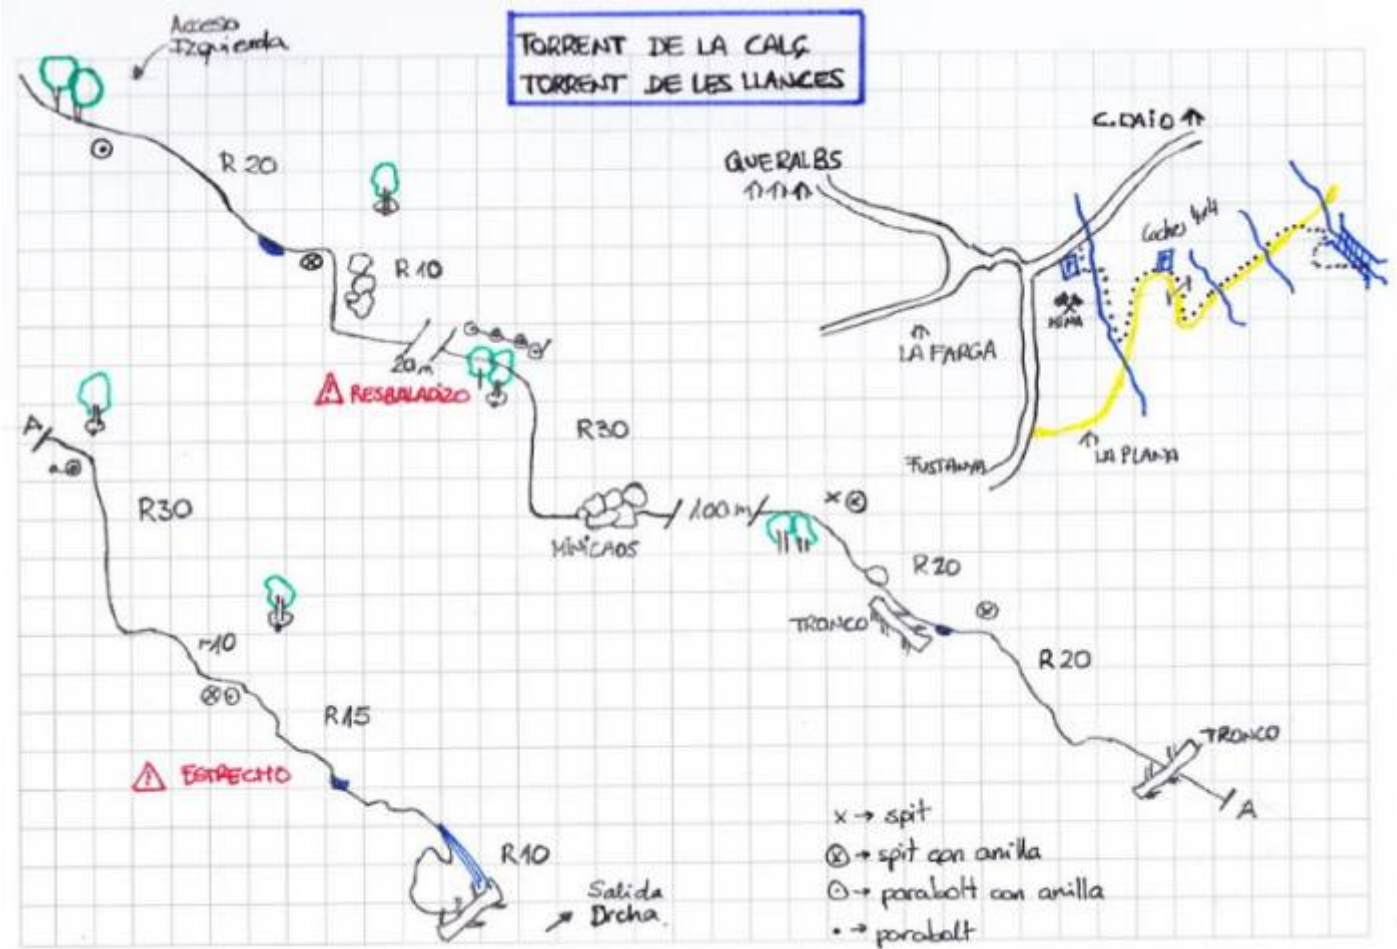 Acceso
Izquierda
TORRENT DE LA CALÇ
TORRENT DE LES LLANCES
R 20
R 10
20m
RESBALADIZO
R30
MINICAOS
100 m
R20
TRONCO
R20
TRONCO
A
A
R30
r10
R15
ESTRECHO
R10
Salida
Drcha.
QUERALBS
C. DAIO
Coches 4x4
MINA
LA FARGA
FUSTANYA
LA PLANA
x → spit
→ spit con anilla
→ parabolt con anilla
• → parabolt